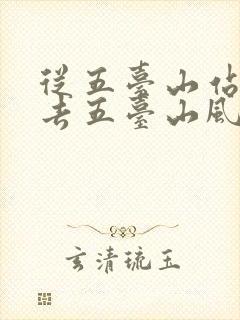 從五臺山佔
去五臺山風
玄清琉玉